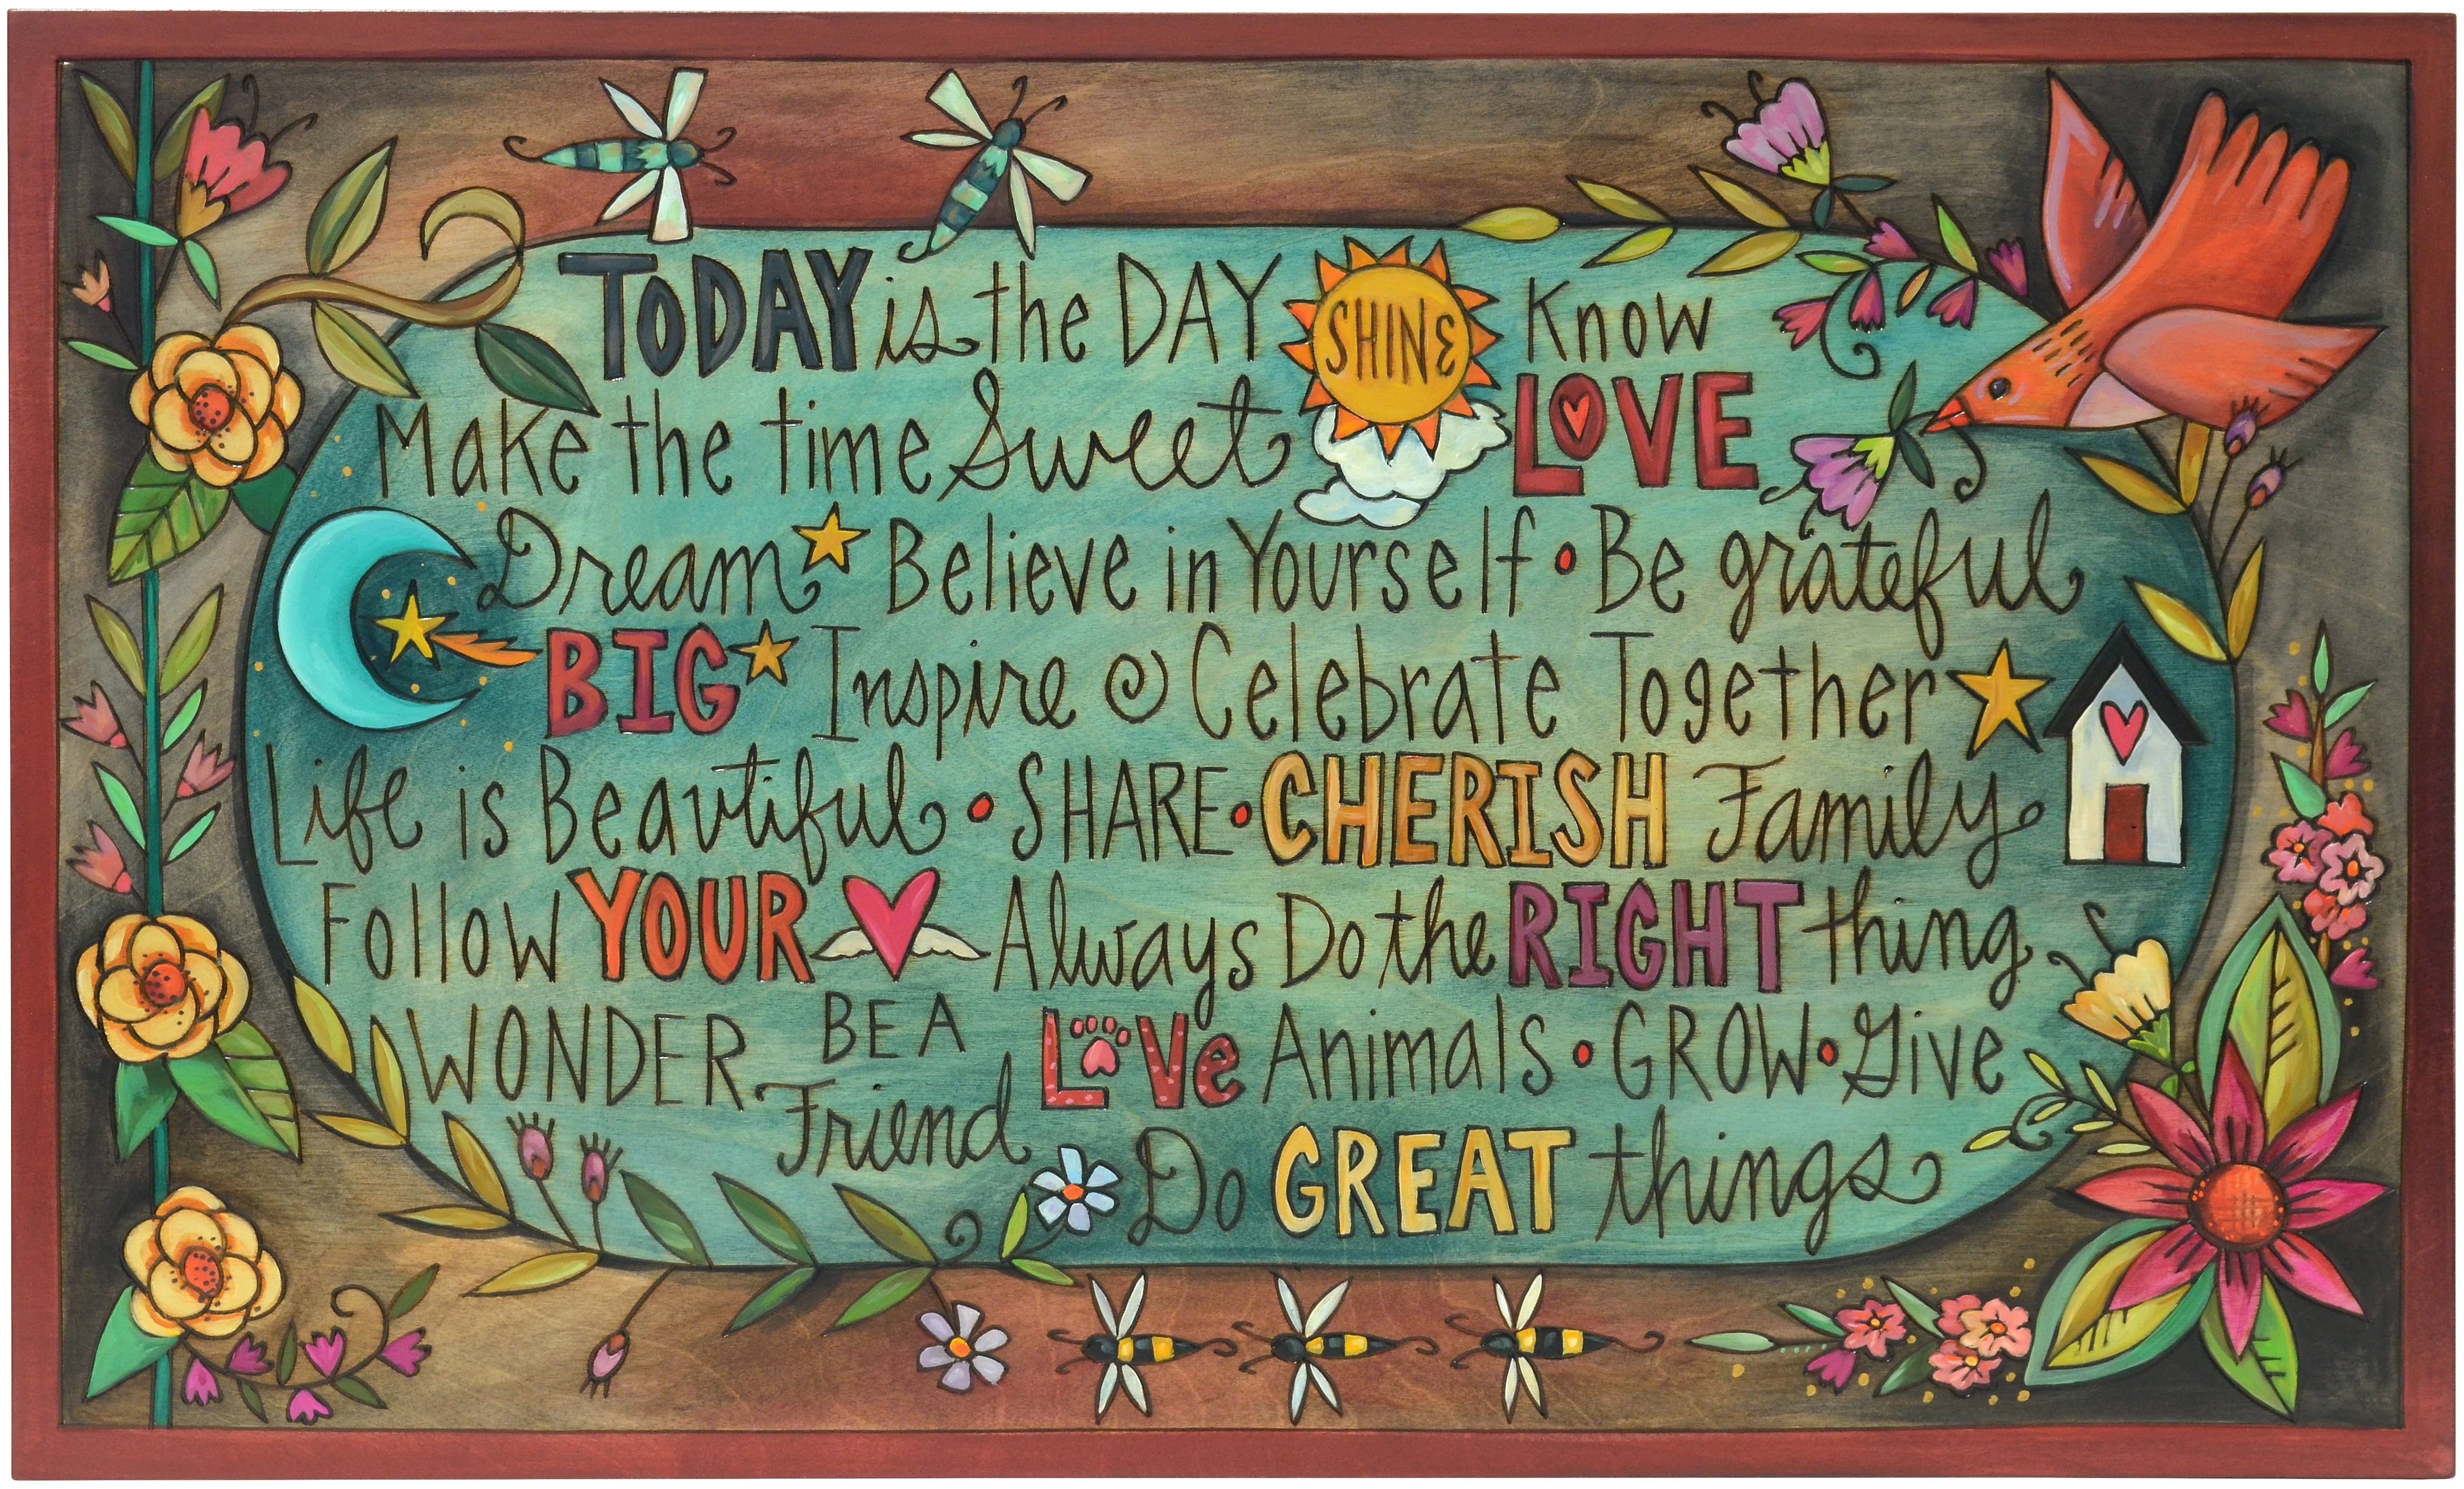 TODAY is the DAY SHINE Know
Make the time Sweet LOVE
Dream Believe in Yourself • Be grateful
BIG Inspire Celebrate Together
Life is Beautiful • SHARE • CHERISH Family
Follow YOUR Always Do the RIGHT thing
WONDER BE A Friend LOVe Animals • GROW • Give
Do GREAT things